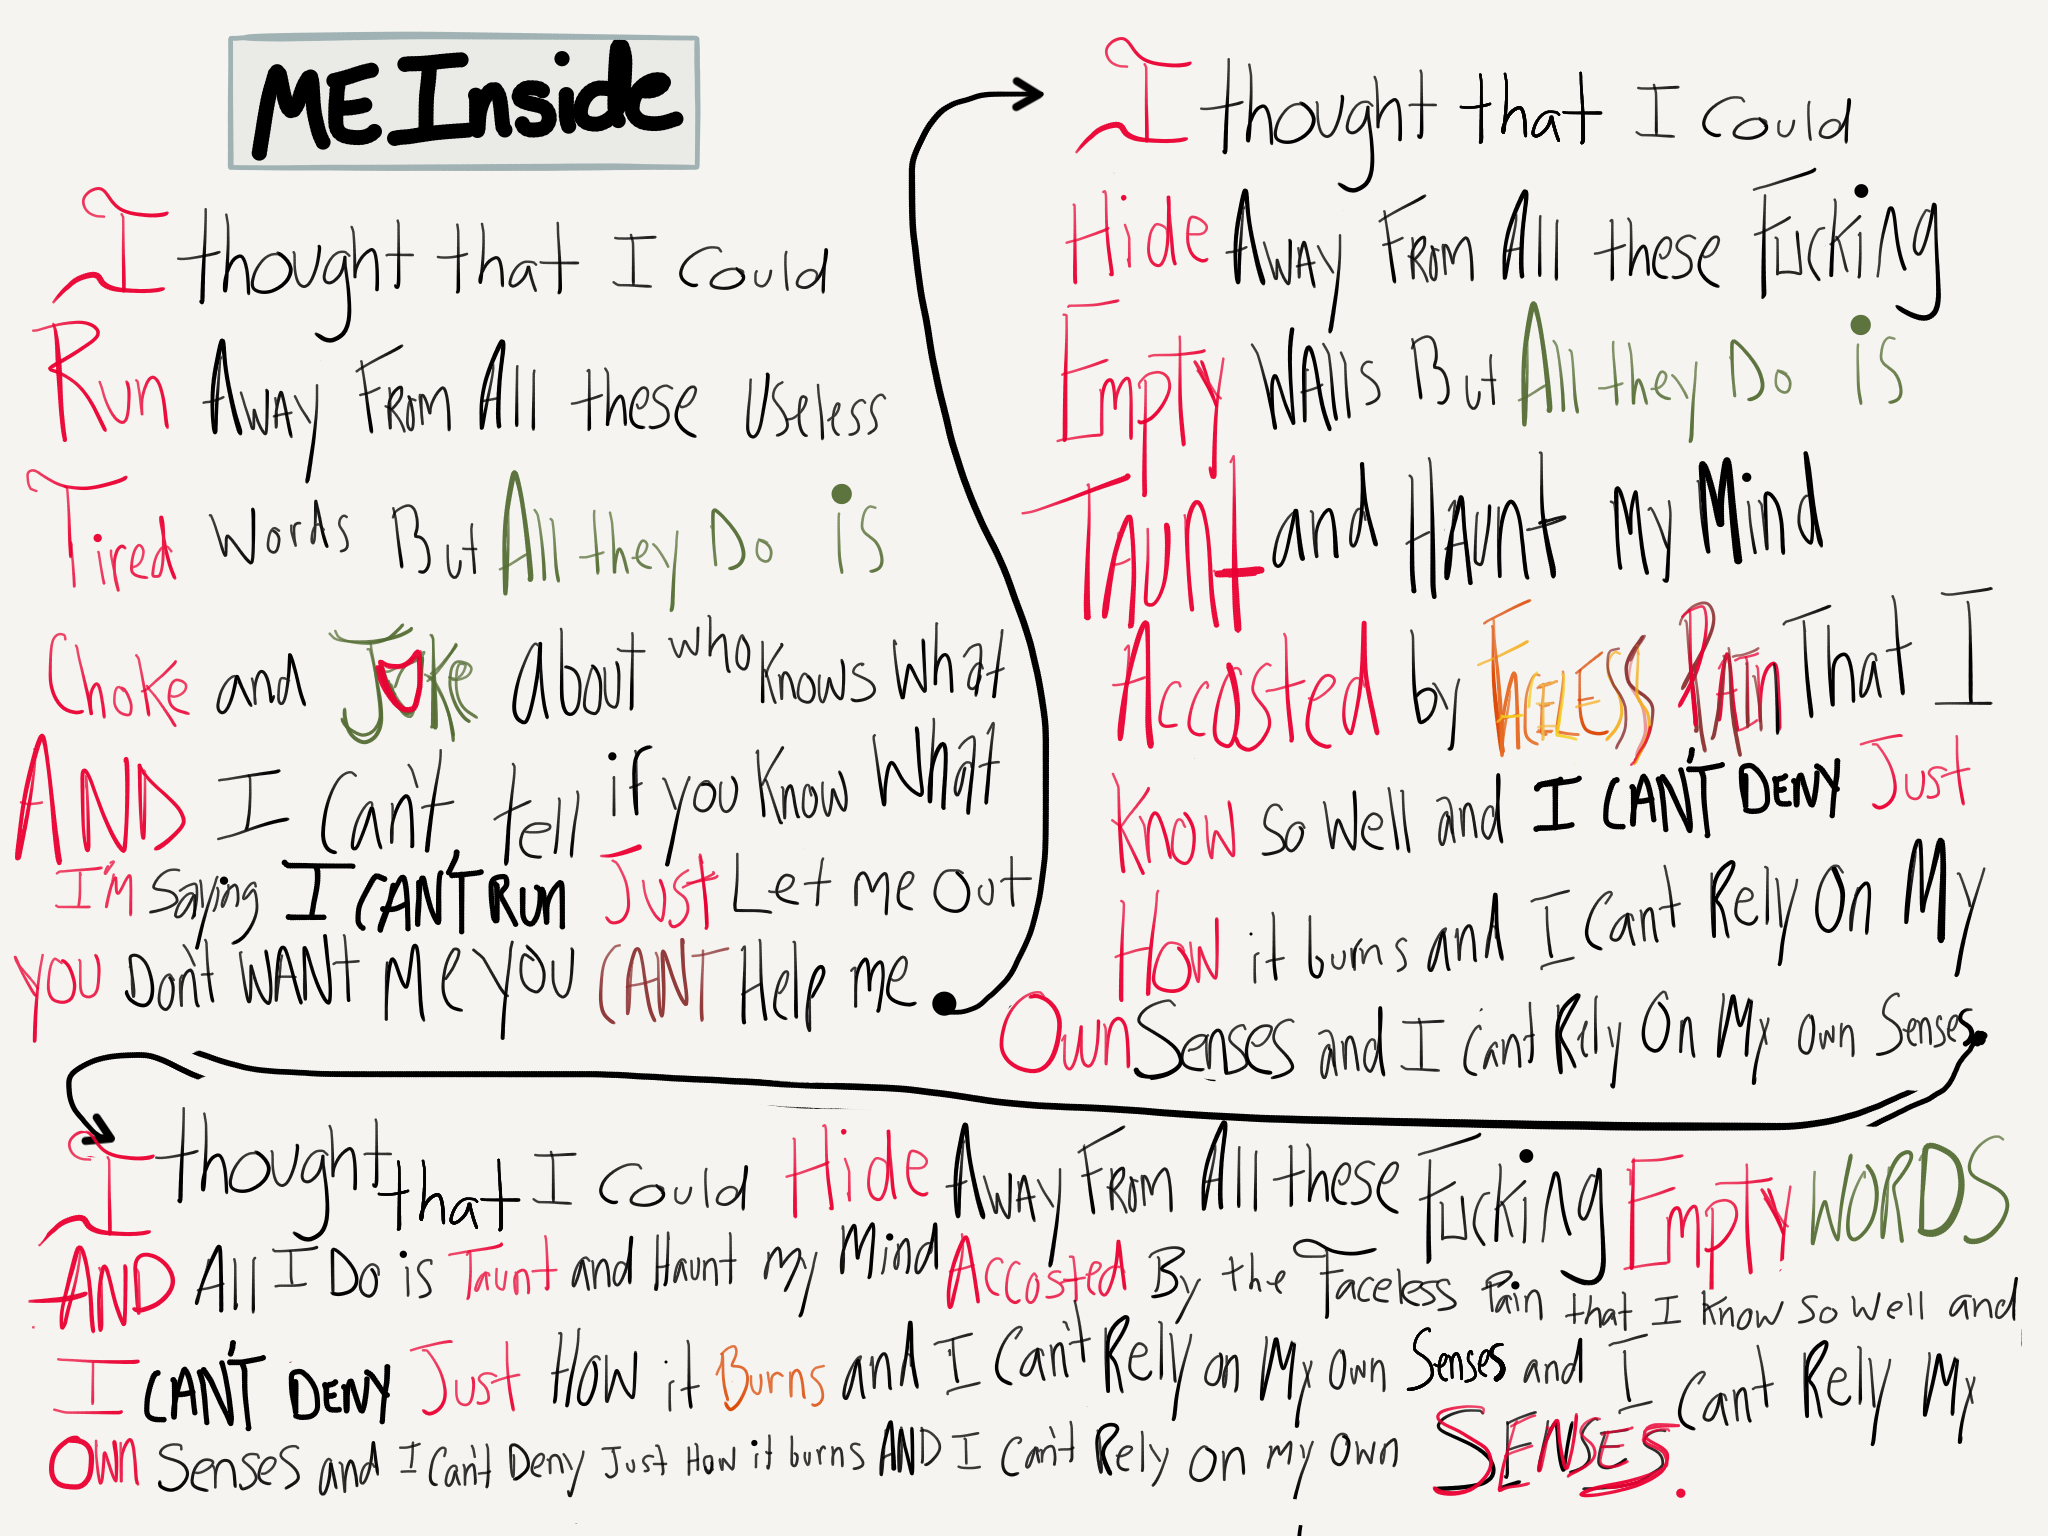 ME Inside
I thought that I Could
Run Away From All these Useless
Tired words But All they Do is
Choke and Joke About who Knows What
AND I Can't tell if you Know What
I'm Saying I CAN'T RUN Just Let me Out
you Don't WANt Me you CANT Help me
I thought that I Could
Hide Away From All these Fucking
Empty Walls But All they Do is
TAunt and HAunt My Mind
Accosted by FACELESS PAIN That I
Know so Well and I CAN'T DENY Just
How it burns and I Cant Rely On My
Own Senses and I Cant Rely On My own Senses.
I thought that I Could Hide Away From All these Fucking Empty WORDS
AND All I Do is Taunt and Haunt my Mind Accosted By the Faceless Pain that I Know So Well and
I CAN'T DENY Just How it Burns and I Can't Rely on My Own Senses and I Cant Rely My
Own Senses and I Can't Deny Just How it burns AND I Can't Rely on my Own SENSES.